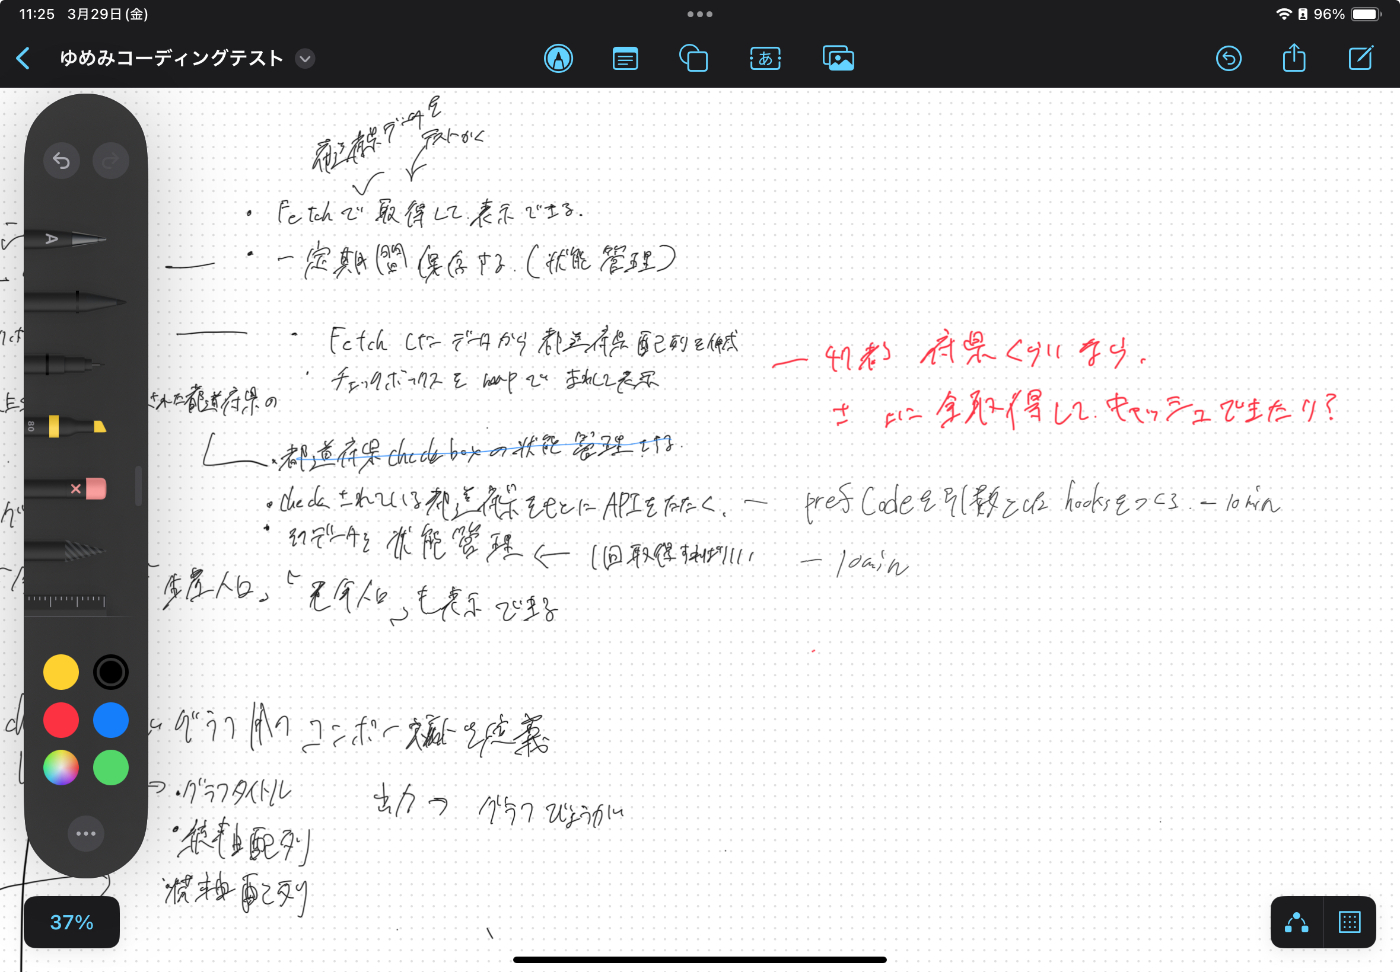 11:25 3月29日(金)
96%
ゆめみコーディングテスト
都道府県データを
テストかく
・Fetchで取得して表示できる.
・一定期間保存する.(状態管理)
・Fetchしたデータから都道府県配列を作成
・チェックボックスをmapでまわして表示
された都道府県の
・都道府県checkboxの状態管理をする.
・checkされている都道府県をもとにAPIをたたく.
・そのデータを状態管理 ← 1回取得すればいい
人口」「老年人口」も表示できる
— 47都府県くらいなら.
に全取得して.キャッシュできたり?
— prefCodeを引数とした hooksをつくる. — 10min
— 10min
グラフ用のコンポーネントを定義
・グラフタイトル
・縦軸配列
・横軸配列
出力→ グラフびょうがい
80
37%